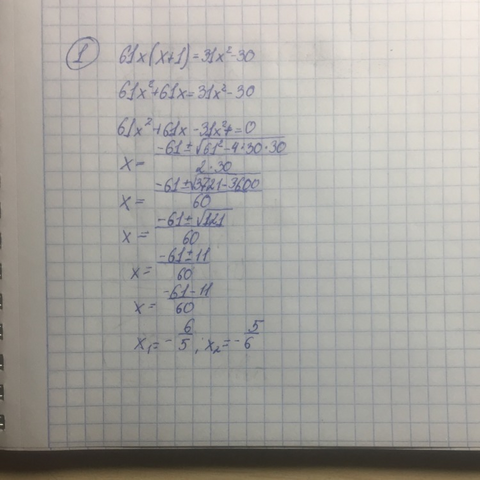 1 61x(x+1)=31x²-30
61x²+61x=31x²-30
61x²+61x-31x²+=0
x = -61±√61²-4·30·30 / 2·30
x = -61±√3721-3600 / 60
x = -61±√121 / 60
x = -61±11 / 60
x = -61-11 / 60
x₁=-6/5; x₂=-5/6